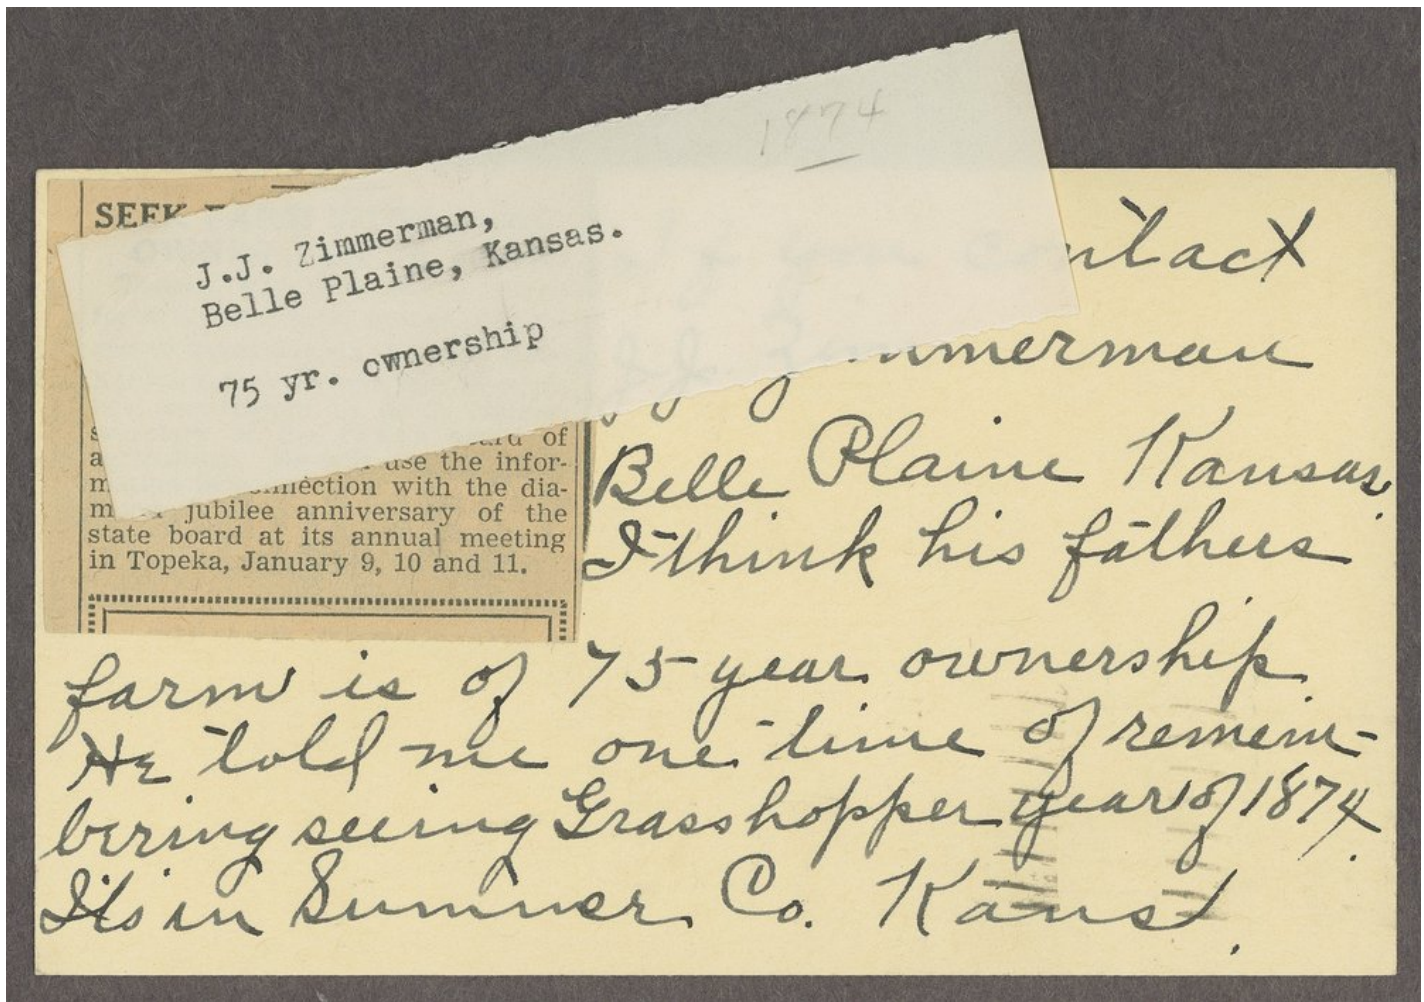 1874
J.J. Zimmerman,
Belle Plaine, Kansas.
75 yr. ownership
SEEK
ard of
use the infor-
nection with the dia-
jubilee anniversary of the
state board at its annual meeting
in Topeka, January 9, 10 and 11.
contact
Zimmerman
Belle Plaine Kansas.
I think his fathers
farm is of 75 year ownership
He told me one time of remem-
bering seeing Grasshopper year of 1874.
Its in Sumner Co. Kans.